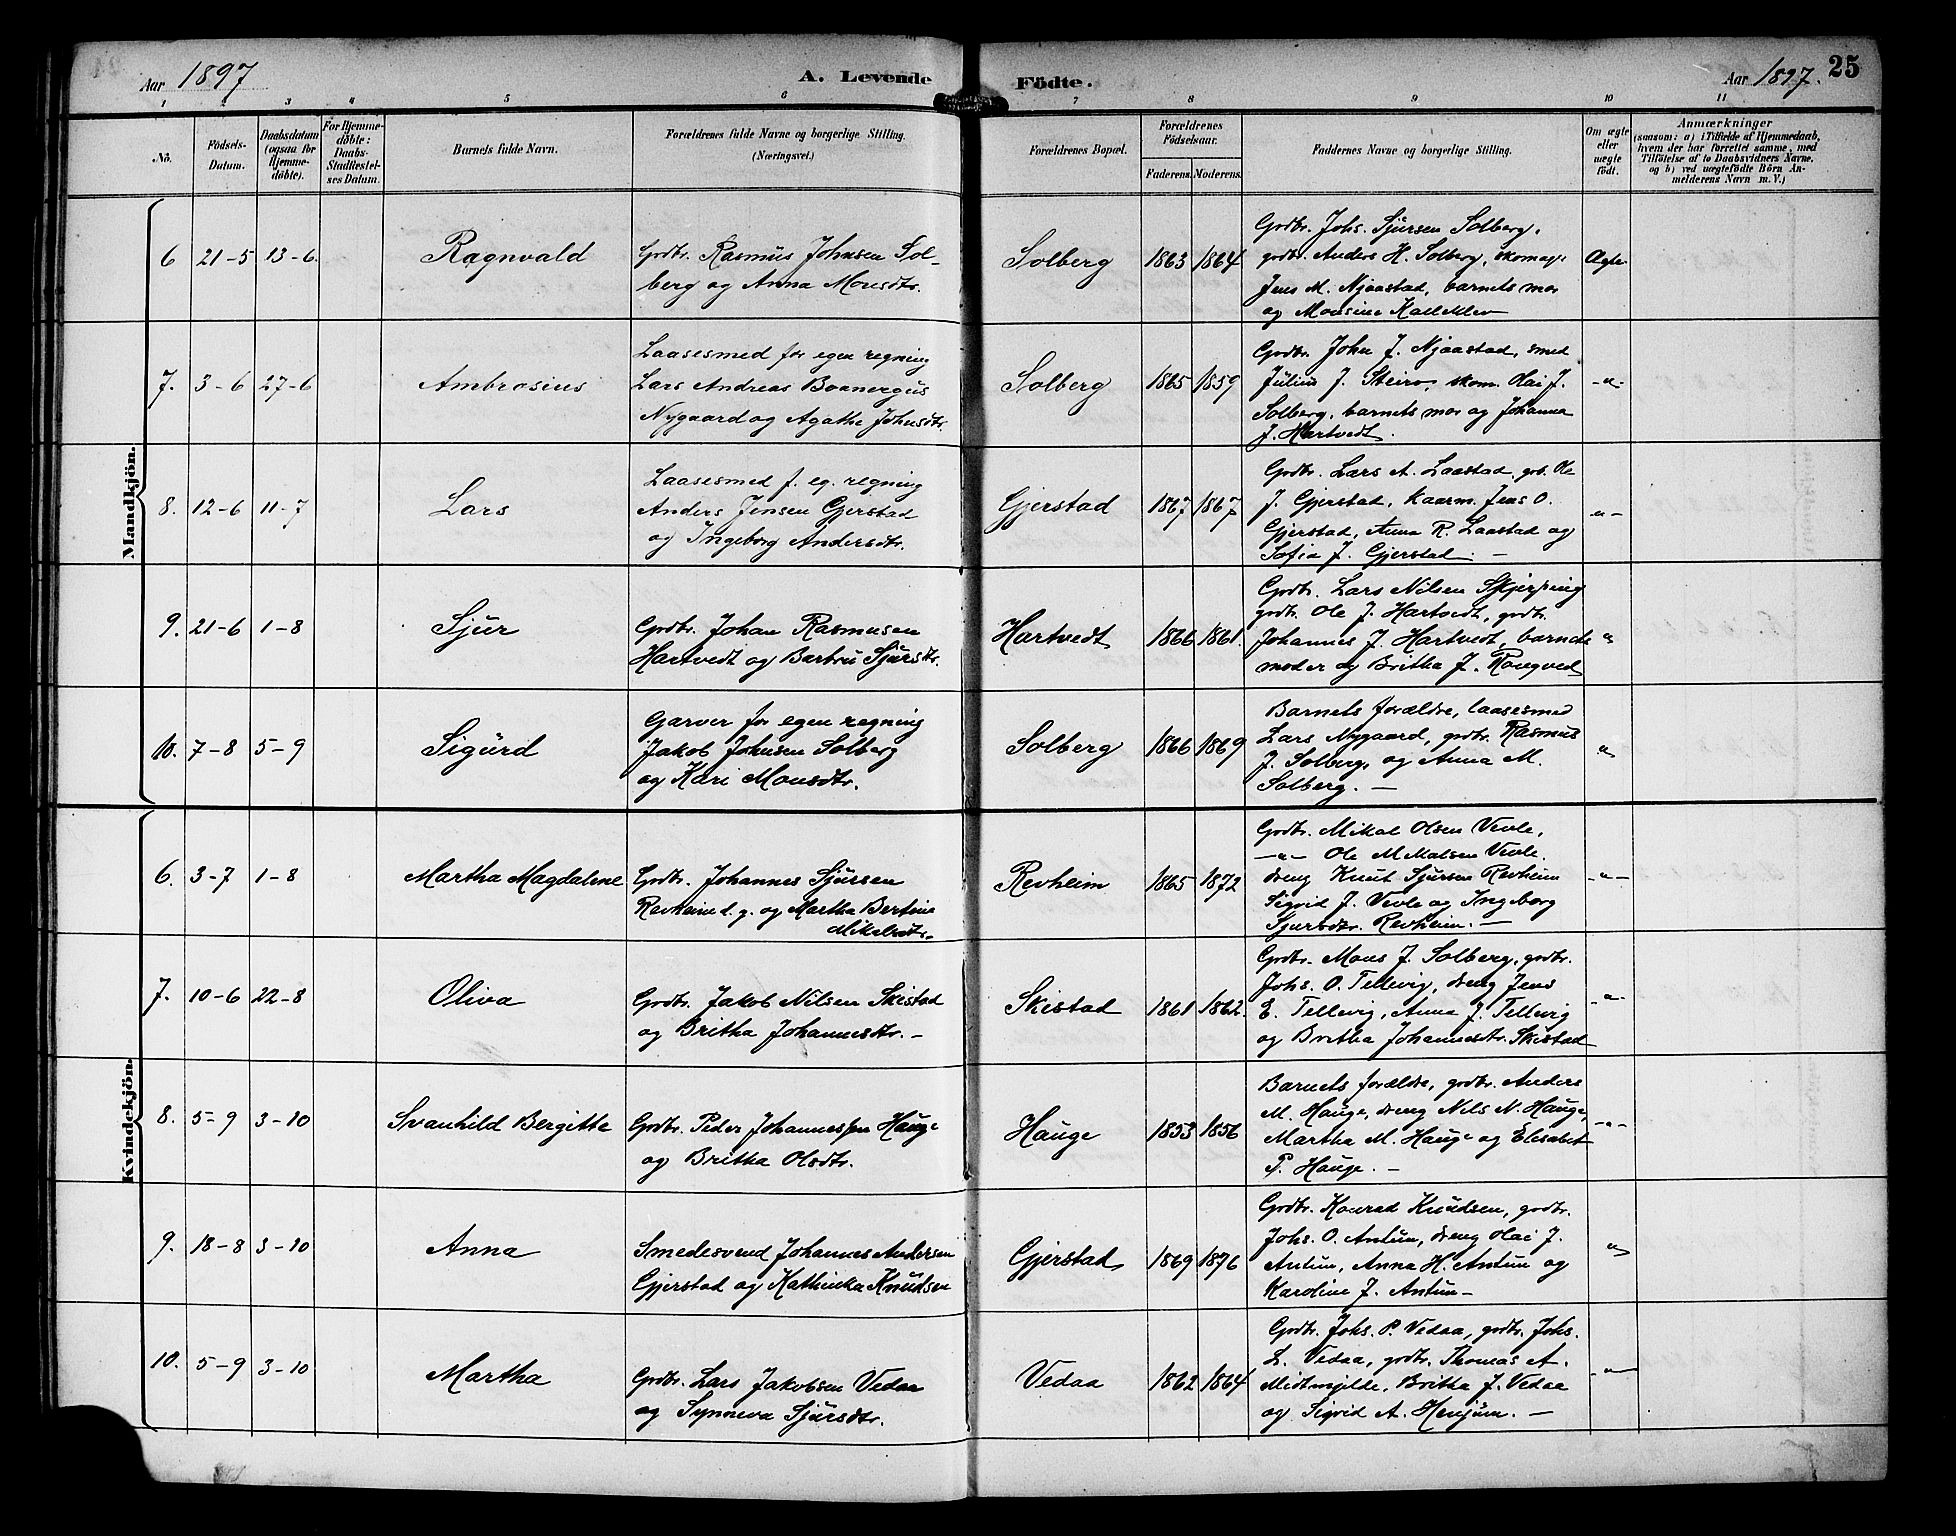 Aar 1897
A. Levende Födte.
Aar 1897. 25
1 2 3 4 5 6 7 8 9 10 11
No.
Födsels-
Datum.
Daabsdatum
(ogsaa for
Hjemme-
döbte).
For Hjemme-
döbte:
Daabs-
Stadfæstel-
ses Datum.
Barnets fulde Navn.
Forældrenes fulde Navne og borgerlige Stilling.
(Næringsvei.)
Forældrenes Bopæl.
Forældrenes
Födselsaar.
Faderens. Moderens.
Faddernes Navne og borgerlige Stilling.
Om ægte
eller
uægte
födt.
Anmærkninger
(saasom: a) i Tilfælde af Hjemmedaab,
hvem der har forrettet samme, med
Tilföielse af to Daabsvidners Navne.
og b) ved uægtefödte Börn An-
melderens Navn m. V.)
Mandkjön.
6 21-5 13-6. Ragnvald
Grdbr. Rasmus Johnsen Sol-
berg og Anna Monsdtr.
Solberg 1863 1864
Grdbr. Johs. Sjursen Solberg,
grdbr. Anders H. Solberg, skomag.
Jens M. Njaastad, barnets mor
og Monsine Kalleklev
Ægte
7. 3-6 27-6 Ambrosius
Laasesmed for egen regning
Lars Andreas Boanerges
Nygaard og Agathe Johnsdtr.
Solberg 1865 1859
Grdbr. John J. Njaastad, smed
Julius J. Steiro, skom. Olai J.
Solberg, barnets mor og Johanna
J. Hartvedt.
-"-
8. 12-6 11-7 Lars
Laasesmed f. eg. regning
Anders Jensen Gjerstad
og Ingeborg Andersdtr.
Gjerstad 1867 1867
Grdbr. Lars A. Laastad, grb. Ole
J. Gjerstad, kaarm. Jens O.
Gjerstad, Anna R. Laastad og
Sofia J. Gjerstad. -
"-
9. 21-6 1-8 Sjur
Grdbr. Johan Rasmusen
Hartvedt og Barbru Sjursdtr.
Hartvedt 1866 1861.
Grdbr. Lars Nilsen Skjerping
grdbr. Ole J. Hartvedt, grdbr.
Johannes J. Hartvedt, barnets
moder og Britha J. Rongved
"
10. 7-8 5-9 Sigurd
Garver for egen regning
Jakob Johnsen Solberg
og Kari Monsdtr.
Solberg 1866 1869
Barnets forældre, laasesmed
Lars Nygaard, grdbr. Rasmus
J. Solberg, og Anna M.
Solberg. -
"
Kvindekjön.
6. 3-7 1-8 Martha Magdalene
Grdbr. Johannes Sjursen
Revheim d. y. og Martha Bertine
Mikalsdtr.
Revheim 1865 1872
Grdbr. Mikal Olsen Vevle,
-"- Ole M Malsen Vevle.
dreng Knut Sjursen Revheim
Sigrid J. Vevle og Ingeborg
Sjursdtr. Revheim. -
-"-
7. 10-6 22-8 Oliva
Grdbr. Jakob Nilsen Skistad
og Britha Johannesdtr. -
Skistad 1861 1862.
Grdbr. Mons J. Solberg, grdbr.
Johs. O. Tellevig, dreng Jens
E. Tellevig, Anna J. Tellevig
og Britha Johannesdtr. Skistad
-"-
8. 5-9 3-10 Svanhild Bergitte
Grdbr. Peder Johannessen Hauge
og Britha Olsdtr.
Hauge 1853 1856
Barnets forældre, grdbr. Anders
M. Hauge, dreng Nils N. Hauge,
Martha M. Hauge og Elisabet
P. Hauge. -
-"-
9. 18-8 3-10 Anna
Smedesvend Johannes Andersen
Gjerstad og Kathinka Knudsen
Gjerstad 1869 1876
Grdbr. Konrad Knudsen, grdbr.
Johs. O. Antun, dreng Olai J.
Antun, Anna H. Antun og
Karoline J. Antun-
"
10. 5-9 3-10 Martha
Grdbr. Lars Jakobsen Vedaa
og Synneva Sjursdtr.
Vedaa 1862 1864
Grdbr. Johs. P. Vedaa, grdbr. Johs.
L. Vedaa, grdbr. Thomas A.
Midtmjelde, Britha J. Vedaa
og Sigrid A. Henjum. -
-"-